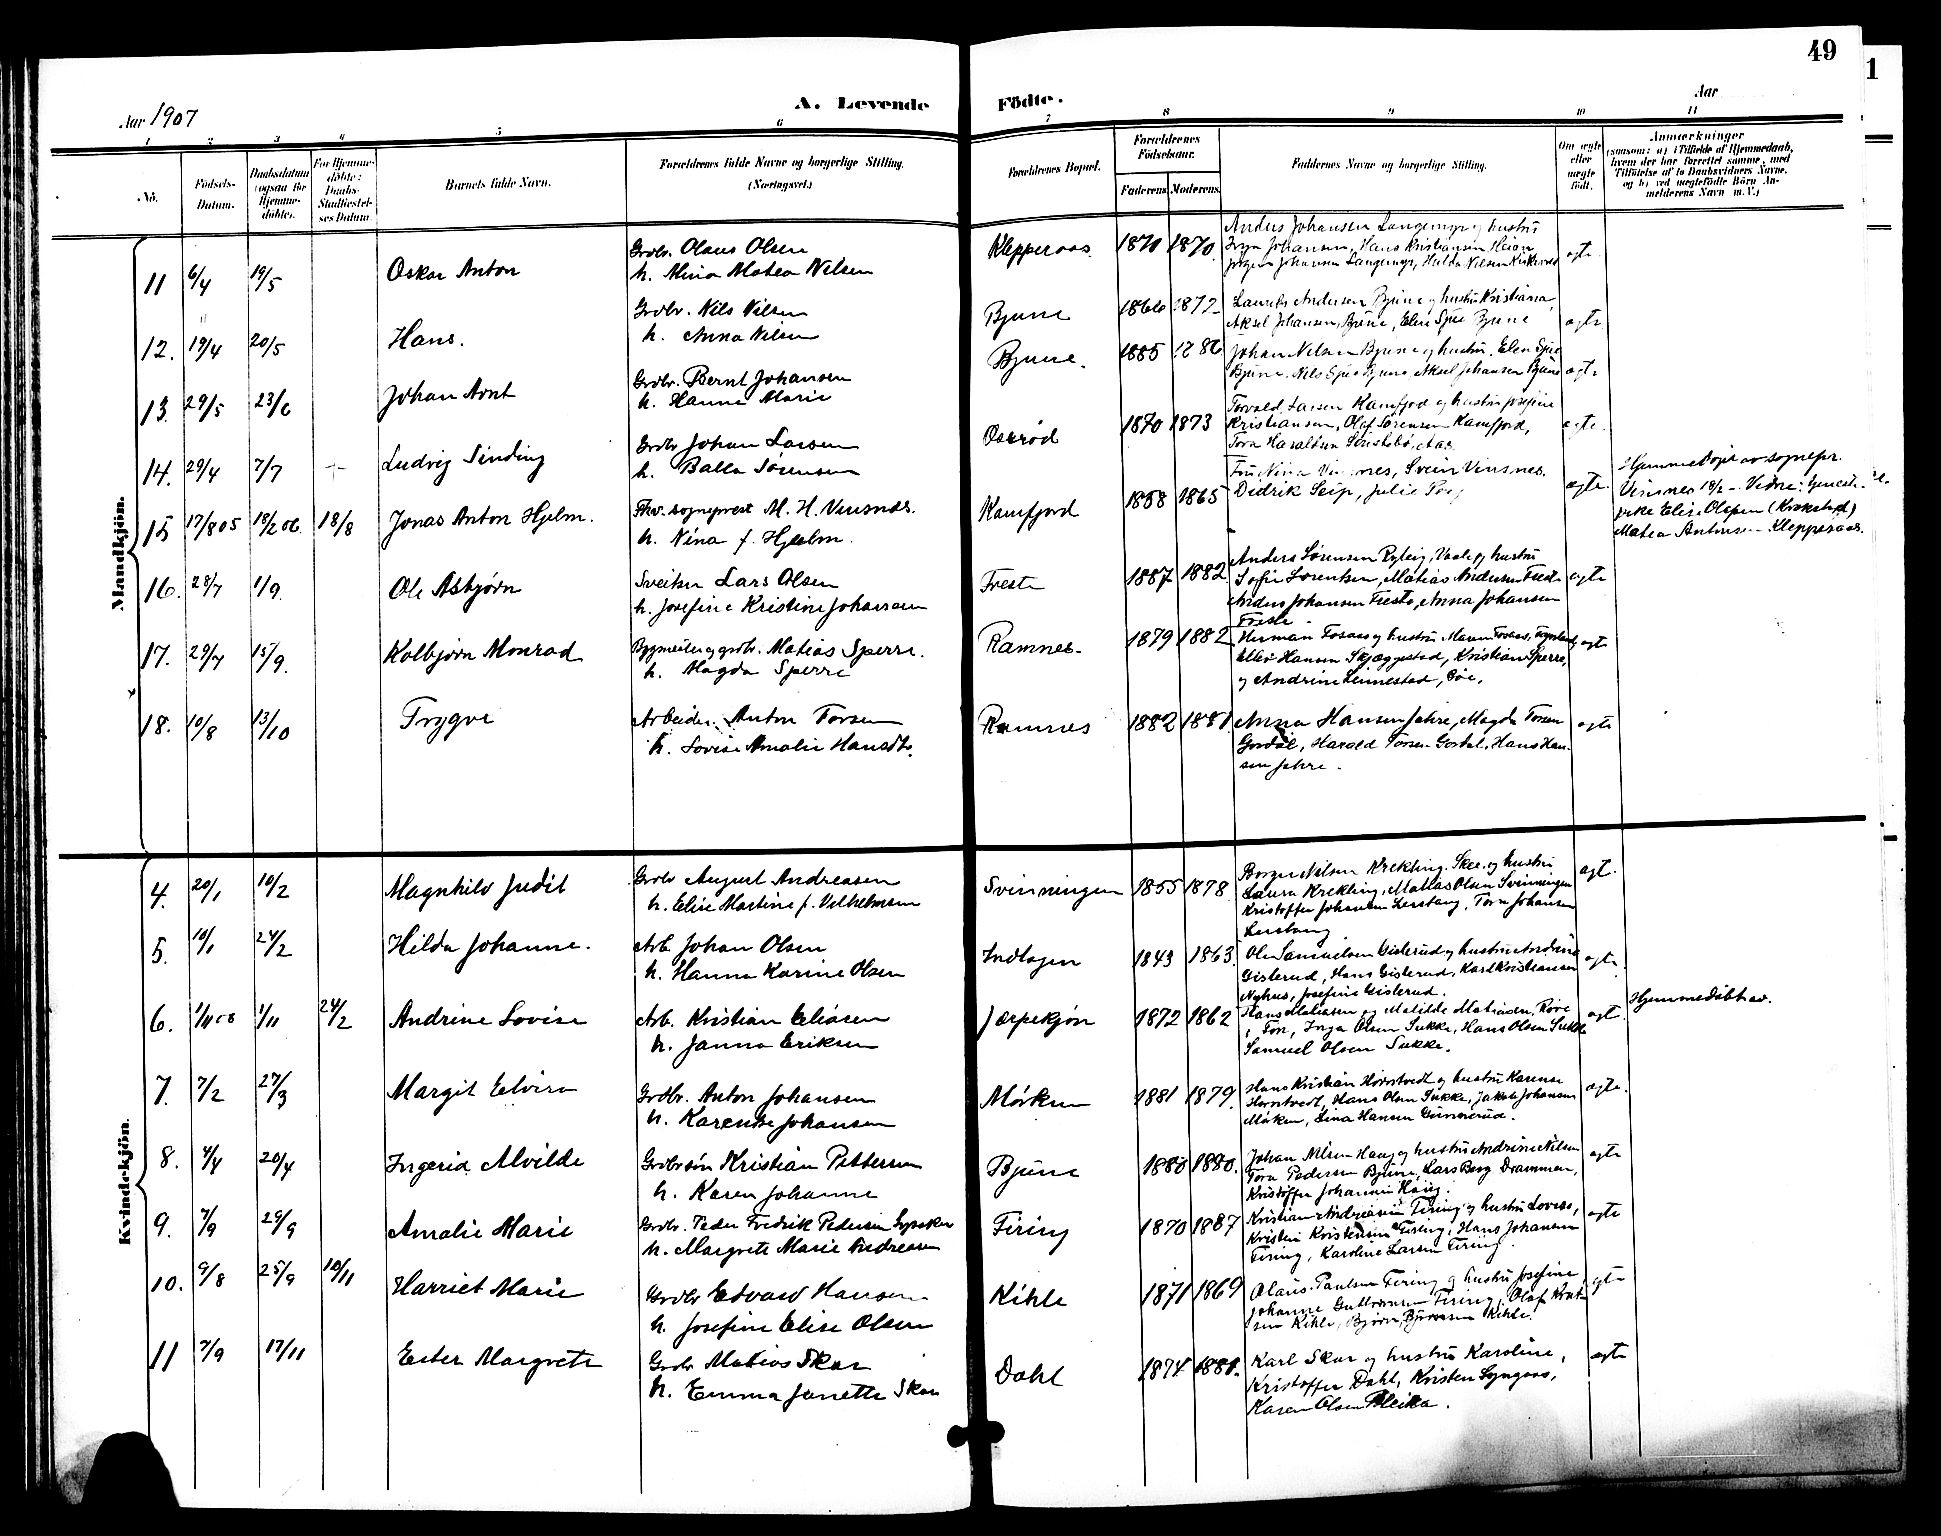 49
1
Aar 1907
A. Levende
Födte.
Aar
1 2 3 4 5 6 7 8 9 10 11
No.
Födsels-
Datum.
Daabsdatum
(ogsaa for
Hjemme-
döbte).
For Hjemme-
döbte:
Daabs-
Stadfæstel-
ses Datum
Barnets fulde Navn.
Forældrenes fulde Navne og borgerlige Stilling.
(Næringsvei.)
Forældrenes Bopæl.
Forældrenes
Födselsaar.
Faderens Moderens
Faddernes Navne og borgerlige Stilling.
Om ægte
eller
uægte
födt.
Anmærkninger
(saasom: a) i Tilfælde af Hjemmedaab,
hvem der har forrettet samme, med
Tilföielse af to Daabsvidners Navne,
og b) ved uægtefödte Börn An-
melderens Navn m. V.)
Mandkjön.
11 6/4 19/5 Oskar Anton
Grdbr. Olaus Olsen
h. Mina Matea Nilsen
Klepperaas 1870 1870
Anders Johansen Langemyr og hustru
Inga Johansen, Hans Kristiansen Heian
Jørgen Johansen Langemyr, Hulda Nilsen
ægte
12. 19/4 20/5 Hans.
Grdbr. Nils Nilsen
h. Anna Nilsen
Bjune 1866 1872
Laurits Andersen Bjune og hustru Kristiana,
Aksel Johansen, Bjune, Elen Sjue Bjune
ægte
13. 29/5 23/6 Johan Arnt
Grdbr. Bernt Johansen
h. Hanna Marie
Bjune. 1885 1886
Johan Nilsen Bjune og hustru, Elen Sjue
Bjune, Nils Sjue Bjune, Aksel Johansen Bjune
ægte
14. 29/4 7/7 Ludvig Sinding
Grdbr Johan Larsen
h. Balla Sørensen
Osrød 1870 1873
Torvald Larsen Kamfjord og hustru Josefine
Kristiansen, Olaf Sørensen Kamfjord,
Tora Haraldsen
ægte.
15 17/8 05 18/2 06. 18/8 Jonas Anton Hjelm.
Fhv. sogneprest M. H. Vinsnes.
h. Nina f. Hjelm.
Kamfjord 1858 1865
Fru Nina Vinsnes, Svein Vinsnes.
Didrik Seip, Julie
ægte.
Hjemmedøpt av sognepr.
Vinsnes 18/2 - Vidne:
pike Elise Olsen (Krokstad)
Matea Antonsen - Klepperaas.
16. 28/7 1/9. Ole Asbjørn
Sveitser Lars Olsen
h. Josefine Kristine Johansen
Freste 1887 1882
Anders Sørensen Ryleig, Vaale og hustru
Sofie Sørensen, Matias Andersen Freste
Anders Johansen Freste, Anna Johansen
Freste.
ægte
17. 29/7 15/9. Kolbjørn Monrad
Bygmester og grdbr. Matias Sperre.
h. Magda Sperre
Ramnes 1879 1882
Herman Fosaas og hustru Maren Fosaas,
Ellev Hansen Skjæggestad, Kristian Sperre,
og Andrine Linnestad, Bøe.
ægte
18. 10/8 13/10 Trygve
Arbeider. Anton Torsen
h. Lovise Amalie Hansdtr.
Ramnes 1882 1881.
Anna Hansen Jahre, Magda Torsen
Gordal, Harald Torsen Gordal, Hans Han-
sen Jahre.
ægte
Kvindekjön.
4. 20/1 10/2 Magnhild Judit
Grdbr August Andreasen
h. Elise Martine f. Vilhelmsen
Svinningen 1855 1878
Borger Nilsen Krekling. Skee. og hustru
Laura Krekling, Matias Olsen Svinningen
Kristoffer Johansen Lerstang, Tora Johansen
Lerstang
ægte.
5. 10/1 24/2 Hilda Johanne.
Arb. Johan Olsen
h. Hanna Karine Olsen
Indlagen 1843 1863.
Ole Samuelsen Gisterud og hustru Andrine
Gisterud, Hans Gisterud, Karl Kristiansen
Nyhus, Josefine Gisterud.
ægte.
6. 1/11 06 1/11 24/2 Andrine Lovise
Arb. Kristian Eliasen
h. Janna Eriksen
Jærpekjøn 1872 1862
Hans Matiasen og Matilde Matiasen, Røre
, Fon, Inga Olsen Sukke, Hans Olsen Sukke
Samuel Olsen Sukke.
ægte.
Hjemmedøbt av.
7. 7/2 27/3 Margit Elvira
Grdbr. Anton Johansen
h. Karense Johansen
Mørken 1881 1879.
Hans Kristian Horntvedt og hustru Karense
Horntvedt, Hans Olsen Sukke, Jakob Johansen
Mørken, Lina Hansen Gunnerud.
ægte.
8. 4/4 20/4 Ingerid Alvilde
Grdbrsøn Kristian Pettersen
h. Karen Johanne
Bjune 1880 1880.
Johan Nilsen Haug og hustru Andrine Nilsen
Tora Pedersen Bjune, Lars Berg Drammen,
Kristoffer Johannsen Haug.
ægte
9. 7/9 29/9 Amalie Marie
Grdbr. Peder Fredrik Pedersen
h. Margrete Marie Andreasen
Firing 1870 1887
Kristian Andreasen Firing og hustru Lovise,
Kristen Kristensen Firing, Hans Johansen
Firing, Karoline Larsen Firing.
ægte
10. 9/8 25/9 10/11 Harriet Marie
Grdbr Edvard Hansen
h. Josefine Elise Olsen
Kihle 1871 1869
Olaus Paulsen Firing og hustru Josefine,
Johanne Guttormsen Firing, Olaf Knut-
sen Kihle, Bjørn Bjørnsen Kihle.
ægte
11 7/9 17/11 Ester Margrete
Grdbr Matias Skar
h. Emma Janette Skar
Dahl 1874 1881.
Karl Skar og hustru Karoline,
Kristoffer Dahl, Kristen Lyngaas,
Karen Olsen Bleika.
ægte